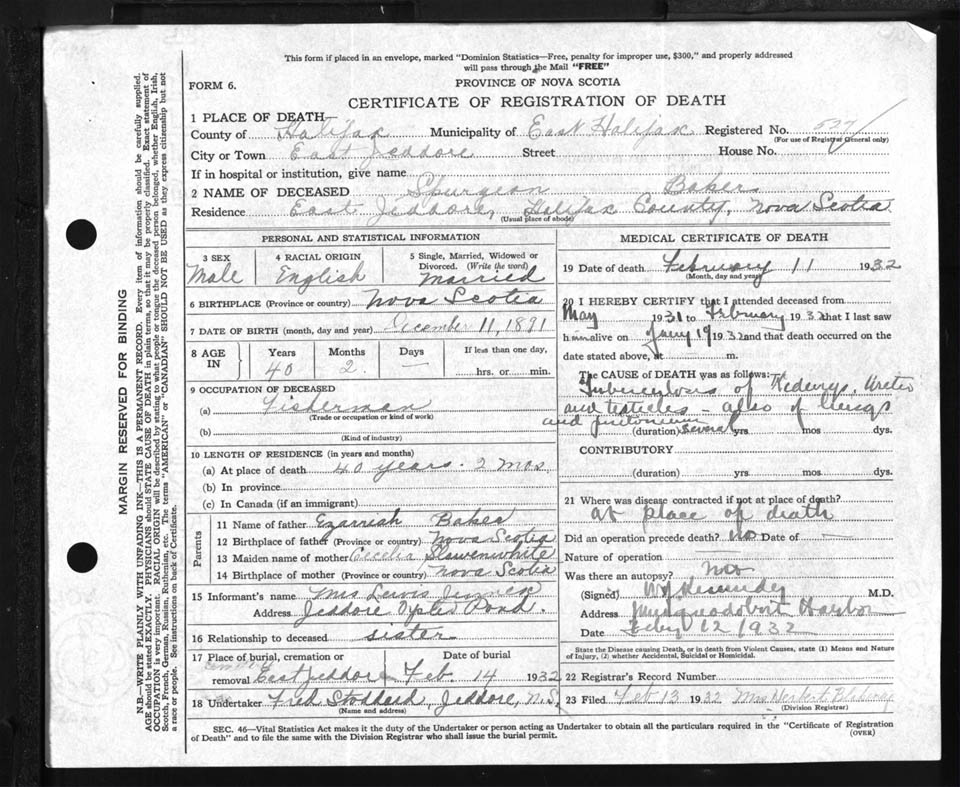 This form if placed in an envelope, marked "Dominion Statistics—Free, penalty for improper use, $300," and properly addressed
will pass through the Mail "FREE"
FORM 6.
PROVINCE OF NOVA SCOTIA
CERTIFICATE OF REGISTRATION OF DEATH
1 PLACE OF DEATH
County of Halifax Municipality of East Halifax Registered No.
(For use of Registrar General only)
City or Town East Jeddore Street House No.
If in hospital or institution, give name
2 NAME OF DECEASED Spurgeon Baker
Residence East Jeddore, Halifax County, Nova Scotia
(Usual place of abode)
PERSONAL AND STATISTICAL INFORMATION
3 SEX 4 RACIAL ORIGIN 5 Single, Married, Widowed or
Divorced. (Write the word)
Male English Married
6 BIRTHPLACE (Province or country) Nova Scotia
7 DATE OF BIRTH (month, day and year) December 11, 1891
8 AGE IN Years Months Days If less than one day,
40 2 — hrs. or min.
9 OCCUPATION OF DECEASED
(a) Fisherman
(Trade or occupation or kind of work)
(b)
(Kind of industry)
10 LENGTH OF RESIDENCE (in years and months)
(a) At place of death 40 years. 2 mos.
(b) In province
(c) In Canada (if an immigrant)
Parents
11 Name of father Baker
12 Birthplace of father (Province or country) Nova Scotia
13 Maiden name of mother Cecelia Slawenwhite
14 Birthplace of mother (Province or country) Nova Scotia
15 Informant's name Mrs Lewis
Address Jeddore Oyster Pond.
16 Relationship to deceased sister
17 Place of burial, cremation or Date of burial
removal East Jeddore Feb 14 1932
18 Undertaker Fred Stoddard, Jeddore, N.S.
(Name and address)
MEDICAL CERTIFICATE OF DEATH
19 Date of death February 11 1932
(Month, day and year)
20 I HEREBY CERTIFY that I attended deceased from
May 1931 to February 1932 that I last saw
him alive on Jany 19 1932 and that death occurred on the
date stated above, at — m.
The CAUSE OF DEATH was as follows:
Tuberculosis of Kidneys, Ureter
and testicles - also of lungs
and peritoneum
(duration) several yrs mos dys.
CONTRIBUTORY
(duration) yrs mos dys.
21 Where was disease contracted if not at place of death?
at place of death
Did an operation precede death? no Date of —
Nature of operation —
Was there an autopsy? no
(Signed) M.D.
Address Musquodoboit Harbor
Date Feby 12 1932
State the Disease causing Death, or in death from Violent Causes, state (1) Means and Nature
of Injury, (2) whether Accidental, Suicidal or Homicidal.
22 Registrar's Record Number
23 Filed Feb 13 1932 Mrs Herbert
(Division Registrar)
SEC. 46—Vital Statistics Act makes it the duty of the Undertaker or person acting as Undertaker to obtain all the particulars required in the "Certificate of Registration
of Death" and to file the same with the Division Registrar who shall issue the burial permit. (OVER)
MARGIN RESERVED FOR BINDING
N.B.—WRITE PLAINLY WITH UNFADING INK—THIS IS A PERMANENT RECORD. Every item of information should be carefully supplied.
AGE should be stated EXACTLY. PHYSICIANS should STATE CAUSE OF DEATH in plain terms, so that it may be properly classified. Exact statement of
OCCUPATION is very important. RACIAL ORIGIN will be described by stating to what people or tongue the deceased person belonged, whether English, Irish,
Scotch, French, German, Russian, Ruthenian, etc. The terms "AMERICAN" or "CANADIAN" SHOULD NOT BE USED as they express citizenship but not
a race or people. See instructions on back of Certificate.